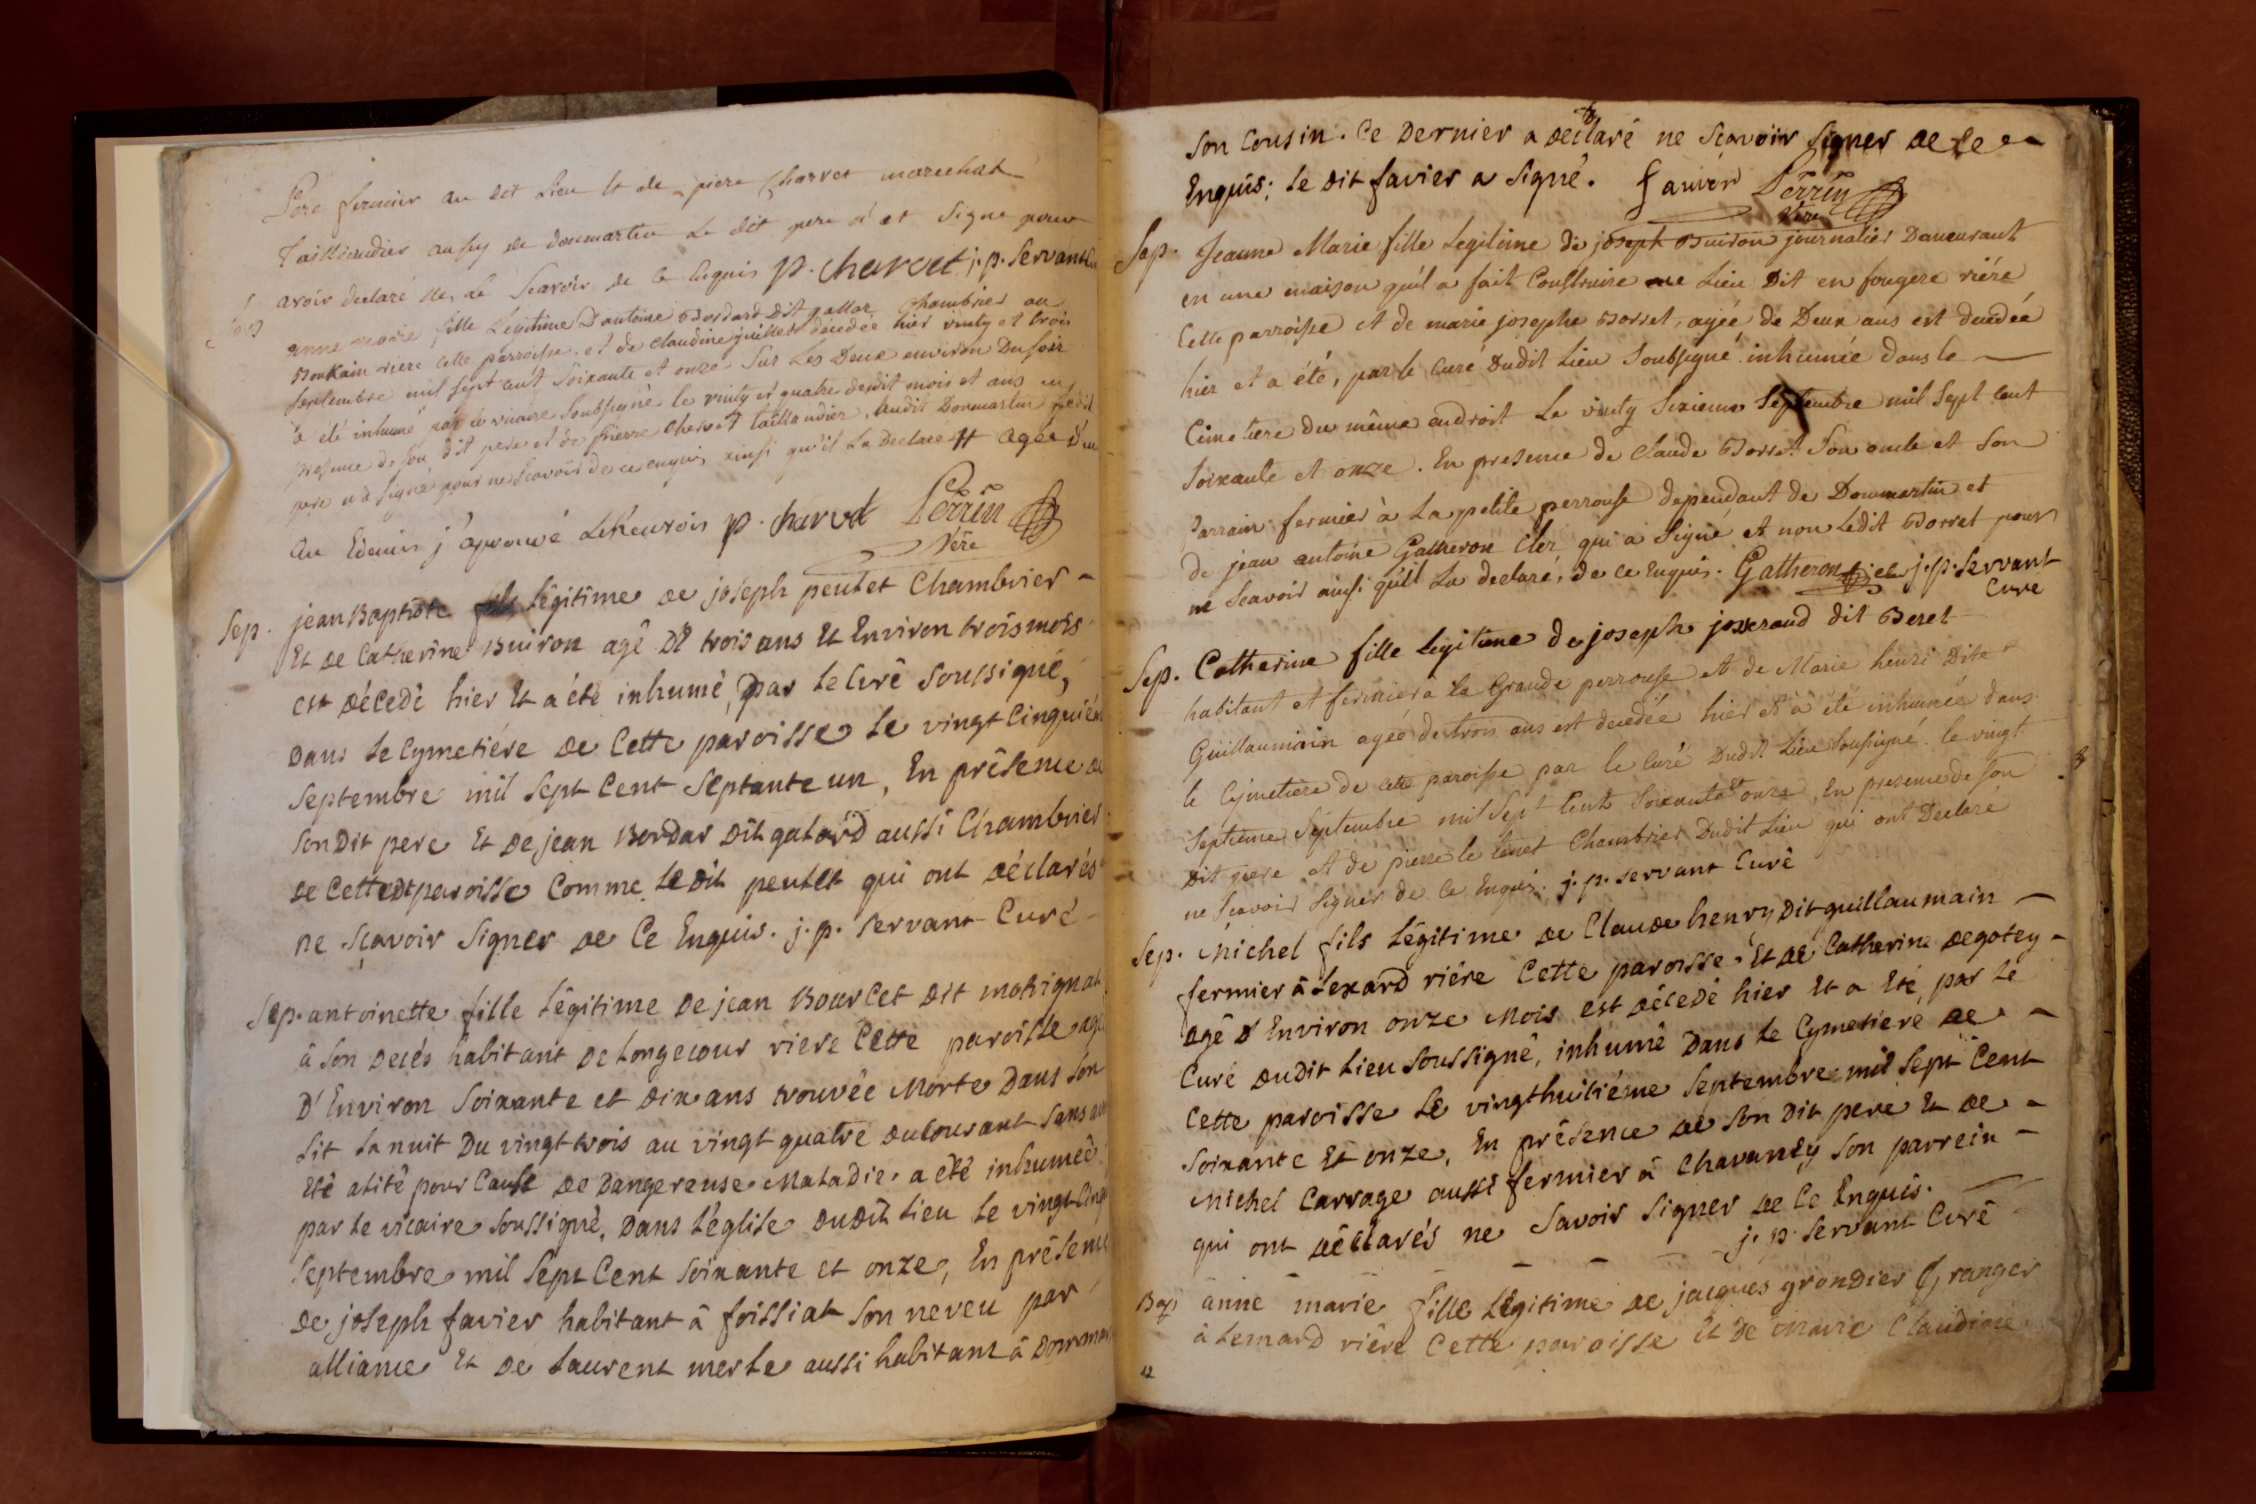 Pere fermier au dit Lieu et de piere Charvet marechal
Taillandier aussy de donmartin Le dit pere a et signe pour
avoir declaré de Scavoir de ce Enquis p. charvet j. p. Servant
Sep anne marie fille Legitime D'antoine Bordard Dit gallar Chambrier au
riere cette parroisse, et de claudine decedée hier vinty et trois
septembre mil sept cent Soixante et onze sur Les Deux environ Du soir
a été inhumé par le vicaire Soubsigné le vinty et quatre dudit mois et ans en
presence de son dit pere et de pierre Chervet taillandier dudit Donmartin
pere n'a signé pour ne Scavoir de ce enquis ainsi qu'il La Declaré # agée d'un
an Edemis j'aprouvé p. charvet Perrin
Vére
Sep. jean Baptiste fils Légitime de joseph peutet Chambrier -
Et de Catherine Buiron agé DE trois ans Et Environ trois mois
est décedé hier Et a été inhumé, par le Curé soussigné,
Dans le Cymetiére de Cette paroisse le vingt Cinquiém
Septembre mil Sept Cent Septante un, En présence de
Son Dit pere Et De jean Bordar Dit galard aussi Chambrier
de Cette Dt paroisse Comme le dit peutet qui ont déclarés
ne Sçavoir Signer de Ce Enquis. j. p. servant Curé -
Sep. antoinette fille Légitime de jean Bourcet Dit matrignat
â Son Decés habitant de Longecour riere Cette paroisse agé
D'Environ Soixante et dix ans trouvée Morte Dans Son
Lit La nuit Du vingt trois au vingt quatre du Courant Sans
Eté alité pour Cause de Dangereuse Maladie. a été inhumeé
par le vicaire soussigné, Dans l'église dudit Lieu le vingt Cinq
Septembre mil Sept Cent Soixante et onze, En présence
De joseph favier habitant â foissiat Son neveu par
alliance Et De Laurent merle aussi habitant â Dommar
Son Cousin. Ce Dernier a declaré ne Scavoir Signer de Ce
Enquis; le dit favier a Signé. favier Perrin
Vére
Sep. Jeanne Marie fille Legitime de joseph Buiron journalier Demeurant
en une maison qu'il a fait Construire au Lieu Dit en fougere riére
Cette parroisse et de marie josephe Borret, agée de Deux ans est decedée
hier et a été, par le Curé Dudit Lieu Soubsigné inhumée dans le
Cimetiere du même endroit Le vinty Sixieme Septembre mil Sept Cent
Soixante et onze. En presence de Claude Borret Son oncle et son
Parrain fermier à La petite perrouse dependant de Donmartin et
de jean antoine Gatheron Cler qui a Signé et non Ledit Borret pour
ne Scavoir ainsi qu'il La declaré, de ce Enquis. Gatheron j. p. Servant
Cure
Sep. Catherine fille legitime de joseph josserand dit Beret
habitant et fermier a la Grande perrouse et de Marie henri Dite
Guillaumain agée de trois ans est decedée hier et à été inhumée dans
le Cymetiere de cette paroisse par le Curé Dudit Lieu Soussigné le vingt
Septieme Septembre mil Sept Cent Soixante et onze, En presence de Son
Dit pere et de pierre le Chambrier Dudit Lieu qui ont Declaré
ne Scavoir Signer de Ce Enquis. j. p. servant Curé
Sep. Michel fils Légitime de Claude henry Dit guillaumain
fermier â Lexard riére Cette paroisse Et de Catherine Degotey -
agé D'Environ onze Mois est décedé hier Et a Eté, par le
Curé dudit Lieu Soussigné, inhumé Dans le Cymetiere de -
Cette paroisse Le vingthuitiéme Septembre mil Sept Cent
Soixante Et onze, En présence de Son Dit pere Et de -
Michel Carrage aussi fermier â Chavanty Son parrein -
qui ont déclarés ne Savoir Signer de Ce Enquis.
j. p. Servant Curé
Bap anne marie fille Légitime de jacques grandier Granger
â Lemard riére Cette paroisse Et De Marie Claudine
12